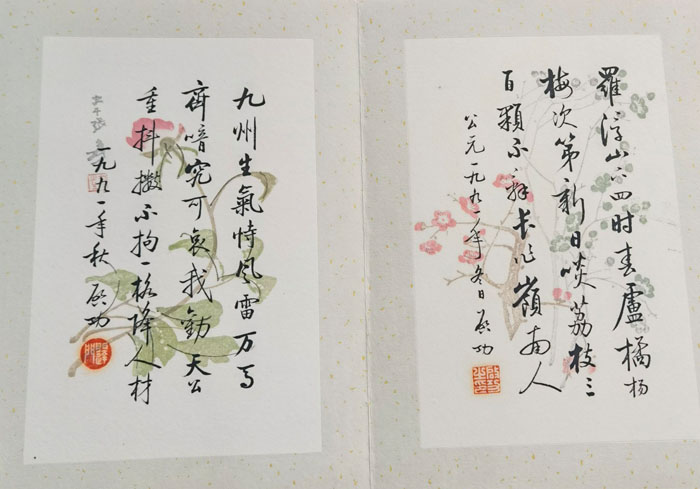 羅浮山下四时春盧橘杨
梅次第新日啖荔枝三
百顆不辞长作嶺南人
公元一九九一年冬日启功
九州生氣恃風雷万马
齊喑究可哀我勸天公
重抖擞不拘一格降人材
一九九一年秋启功